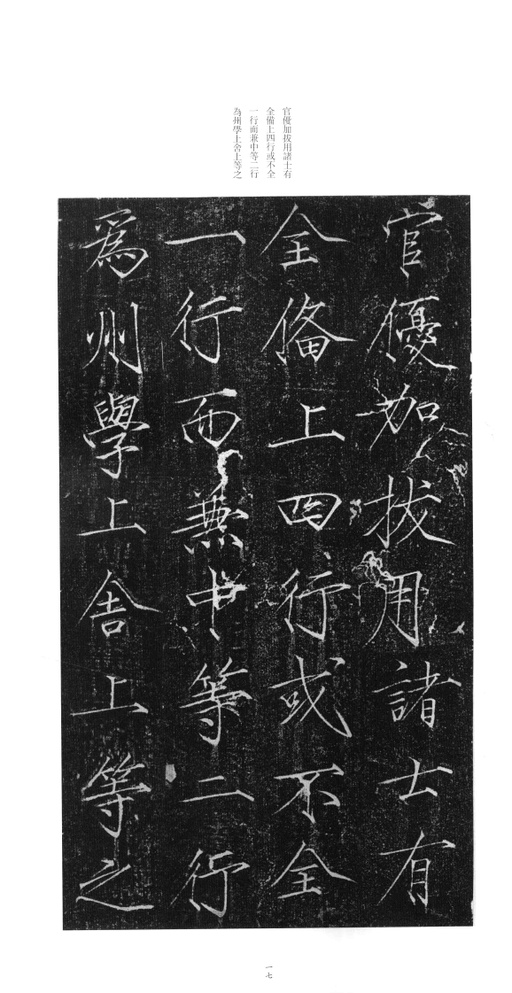 官優加拔用諸士有
全備上四行或不全
一行而兼中等二行
為州學上舍上等之
官優加拔用諸士有
全備上四行或不全
一行而兼中等二行
爲州學上舍上等之
一七